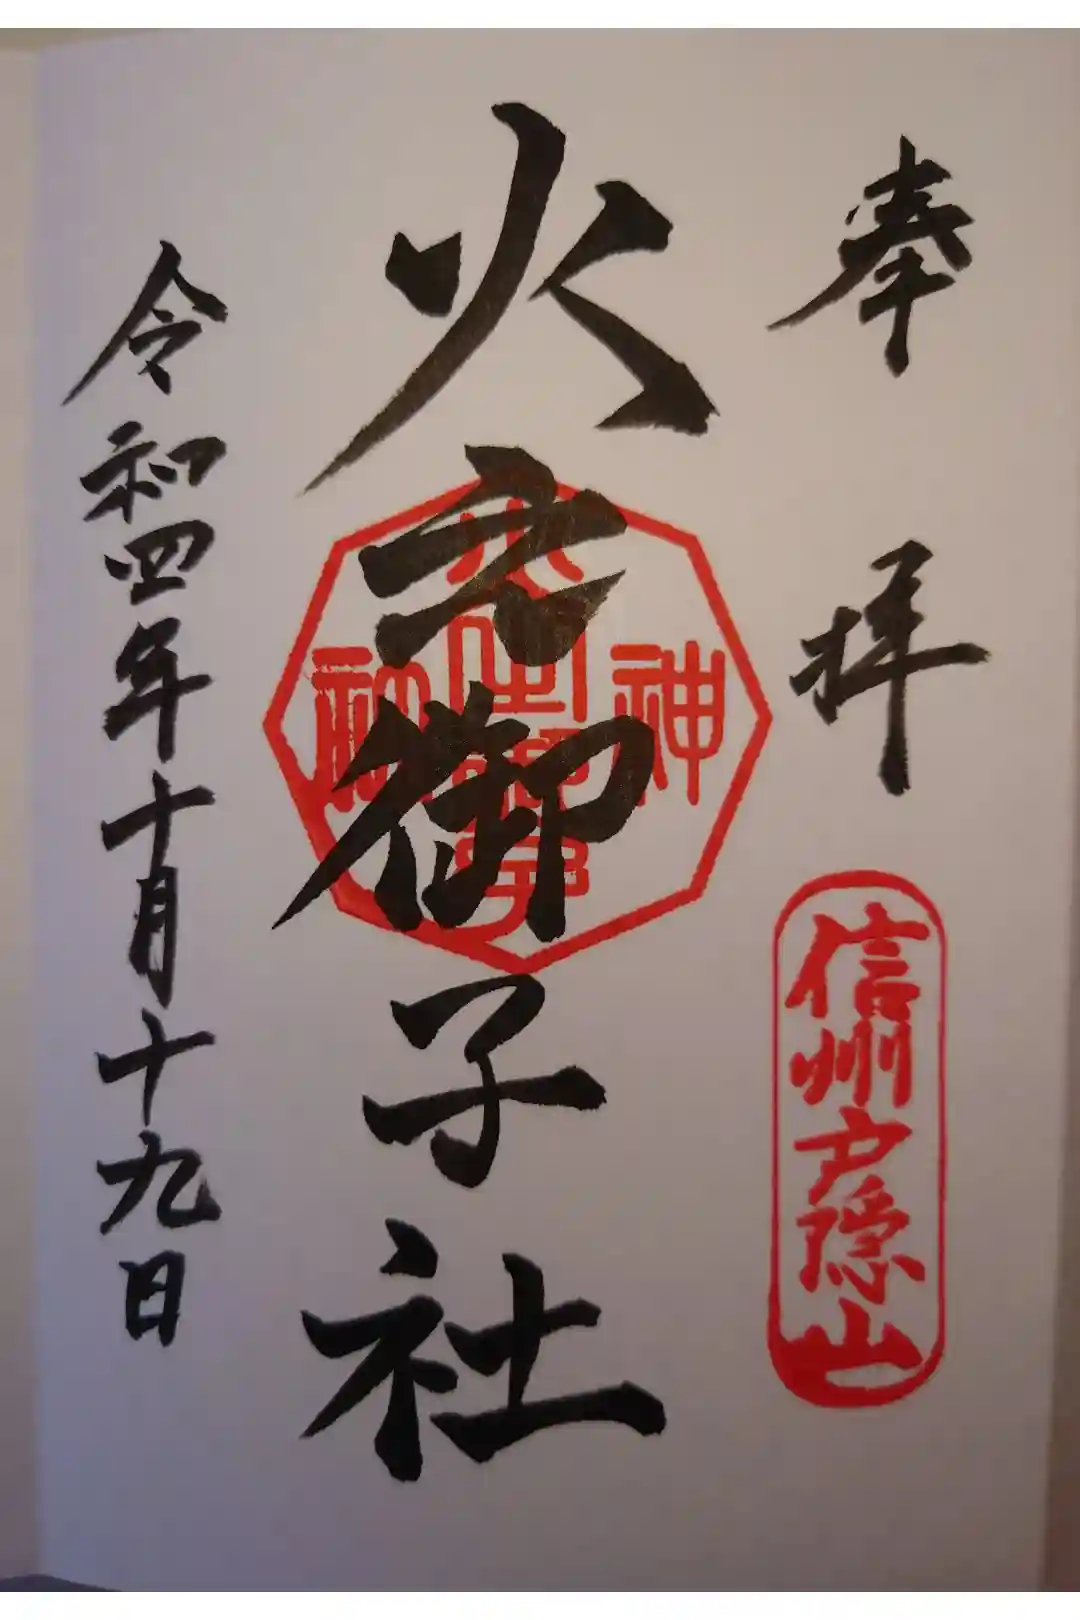 奉拝
信州戸隠山
火之御子社
神
社
火之御子
令和四年十月十九日